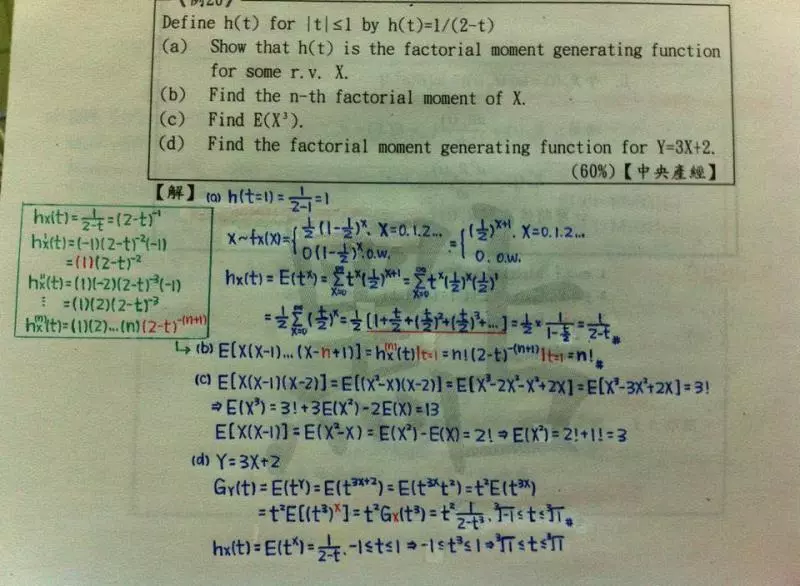 【例20】
Define h(t) for |t|≤1 by h(t)=1/(2-t)
(a) Show that h(t) is the factorial moment generating function
for some r.v. X.
(b) Find the n-th factorial moment of X.
(c) Find E(X³).
(d) Find the factorial moment generating function for Y=3X+2.
(60%)【中央產經】
【解】(a) h(t=1)=1/(2-1)=1
X~fx(x)={½(1-½)^x, X=0.1.2... = {(½)^(x+1), X=0.1.2...
0(1-½)^x, o.w. 0. o.w.
hx(t)=E(t^x)=Σ_{x=0}^∞ t^x(½)^(x+1)=Σ_{x=0}^∞ t^x(½)^x(½)^1
=½Σ_{x=0}^∞(t/2)^x=½[1+t/2+(t/2)²+(t/2)³+...]=½×1/(1-t/2)=1/(2-t)#
hx(t)=1/(2-t)=(2-t)^-1
hx'(t)=(-1)(2-t)^-2(-1)
=(1)(2-t)^-2
hx''(t)=(1)(-2)(2-t)^-3(-1)
⋮ =(1)(2)(2-t)^-3
hx^(n)(t)=(1)(2)...(n)(2-t)^-(n+1)
↳(b) E[X(X-1)...(X-n+1)]=hx^(n)(t)|t=1=n!(2-t)^-(n+1)|t=1=n!#
(c) E[X(X-1)(X-2)]=E[(X²-X)(X-2)]=E[X³-2X²-X²+2X]=E[X³-3X²+2X]=3!
⇒E(X³)=3!+3E(X²)-2E(X)=13
E[X(X-1)]=E(X²-X)=E(X²)-E(X)=2!⇒E(X²)=2!+1!=3
(d) Y=3X+2
Gy(t)=E(t^Y)=E(t^(3X+2))=E(t^(3X)t²)=t²E(t^(3X))
=t²E[(t³)^X]=t²Gx(t³)=t² 1/(2-t³), ³√-1≤t≤³√1#
hx(t)=E(t^x)=1/(2-t), -1≤t≤1⇒-1≤t³≤1⇒³√-1≤t≤³√1